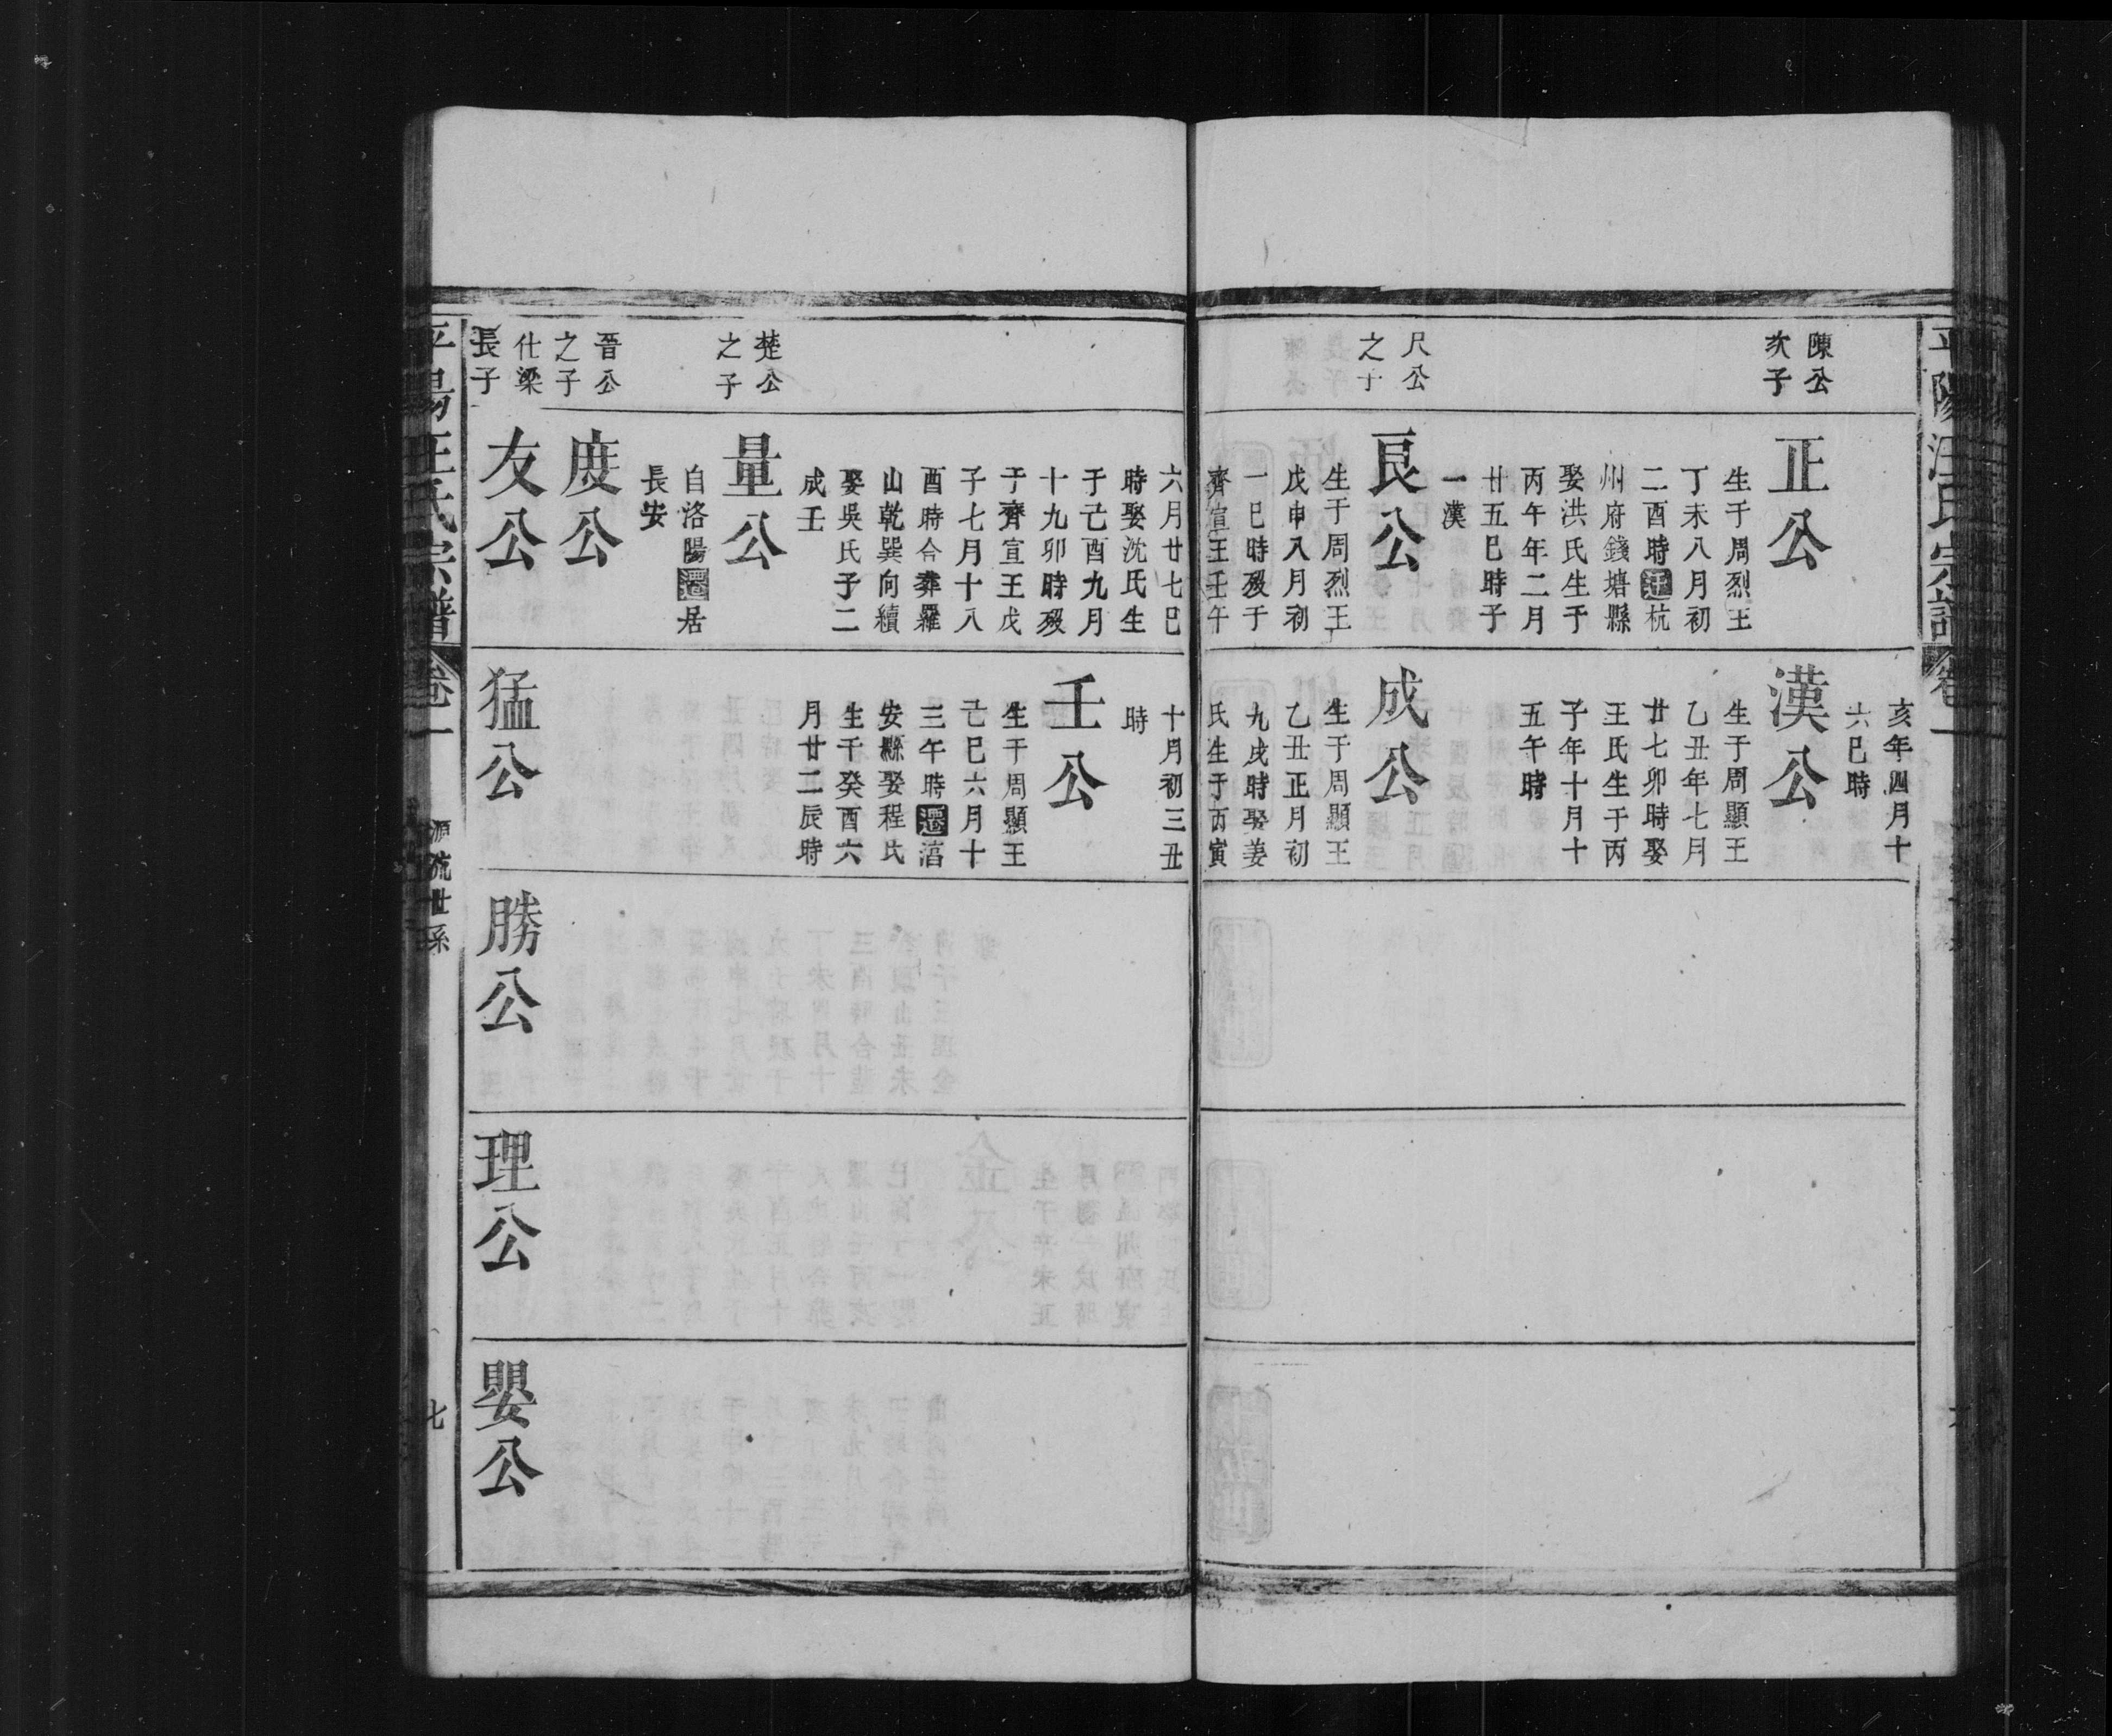 平陽汪氏宗譜
卷一
陳公
次子
正公
生于周烈王
丁未八月初
二酉時迁杭
州府錢塘縣
娶洪氏生于
丙午年二月
廿五巳時子
一漢
尺公
之子
艮公
生于周烈王
戊申八月初
一巳時歿于
齊宣王壬午
亥年四月十
六巳時
漢公
生于周顯王
乙丑年七月
廿七卯時娶
王氏生于丙
子年十月十
五午時
成公
生于周顯王
乙丑正月初
九戌時娶姜
氏生于丙寅
六月廿七巳
時娶沈氏生
于己酉九月
十九卯時歿
于齊宣王戊
子七月十八
酉時合葬羅
山乾巽向續
娶吳氏子二
成壬
楚公
之子
量公
自洛陽遷居
長安
晉公
之子
度公
仕梁
長子
友公
十月初三丑
時
壬公
生于周顯王
己巳六月十
三午時遷湻
安縣娶程氏
生于癸酉六
月廿二辰時
猛公
勝公
理公
嬰公
平陽汪氏宗譜
卷一
源流世系
七